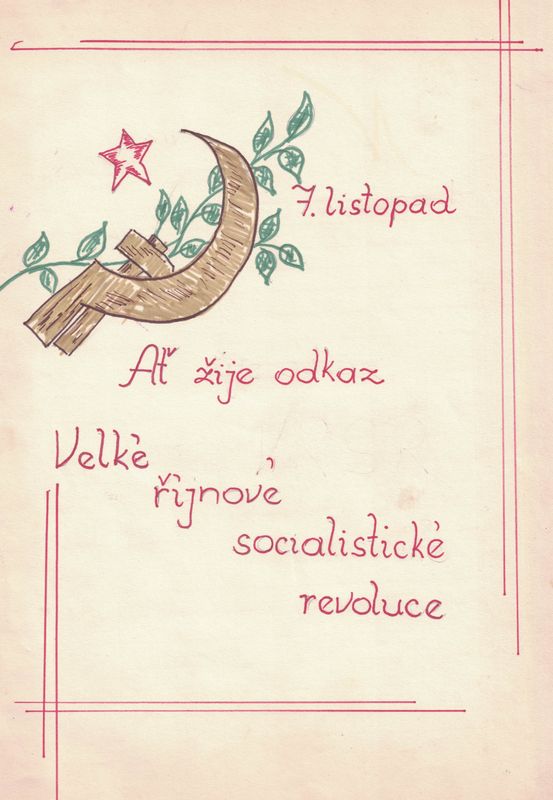 7. listopad
Ať žije odkaz
Velké
říjnové
socialistické
revoluce